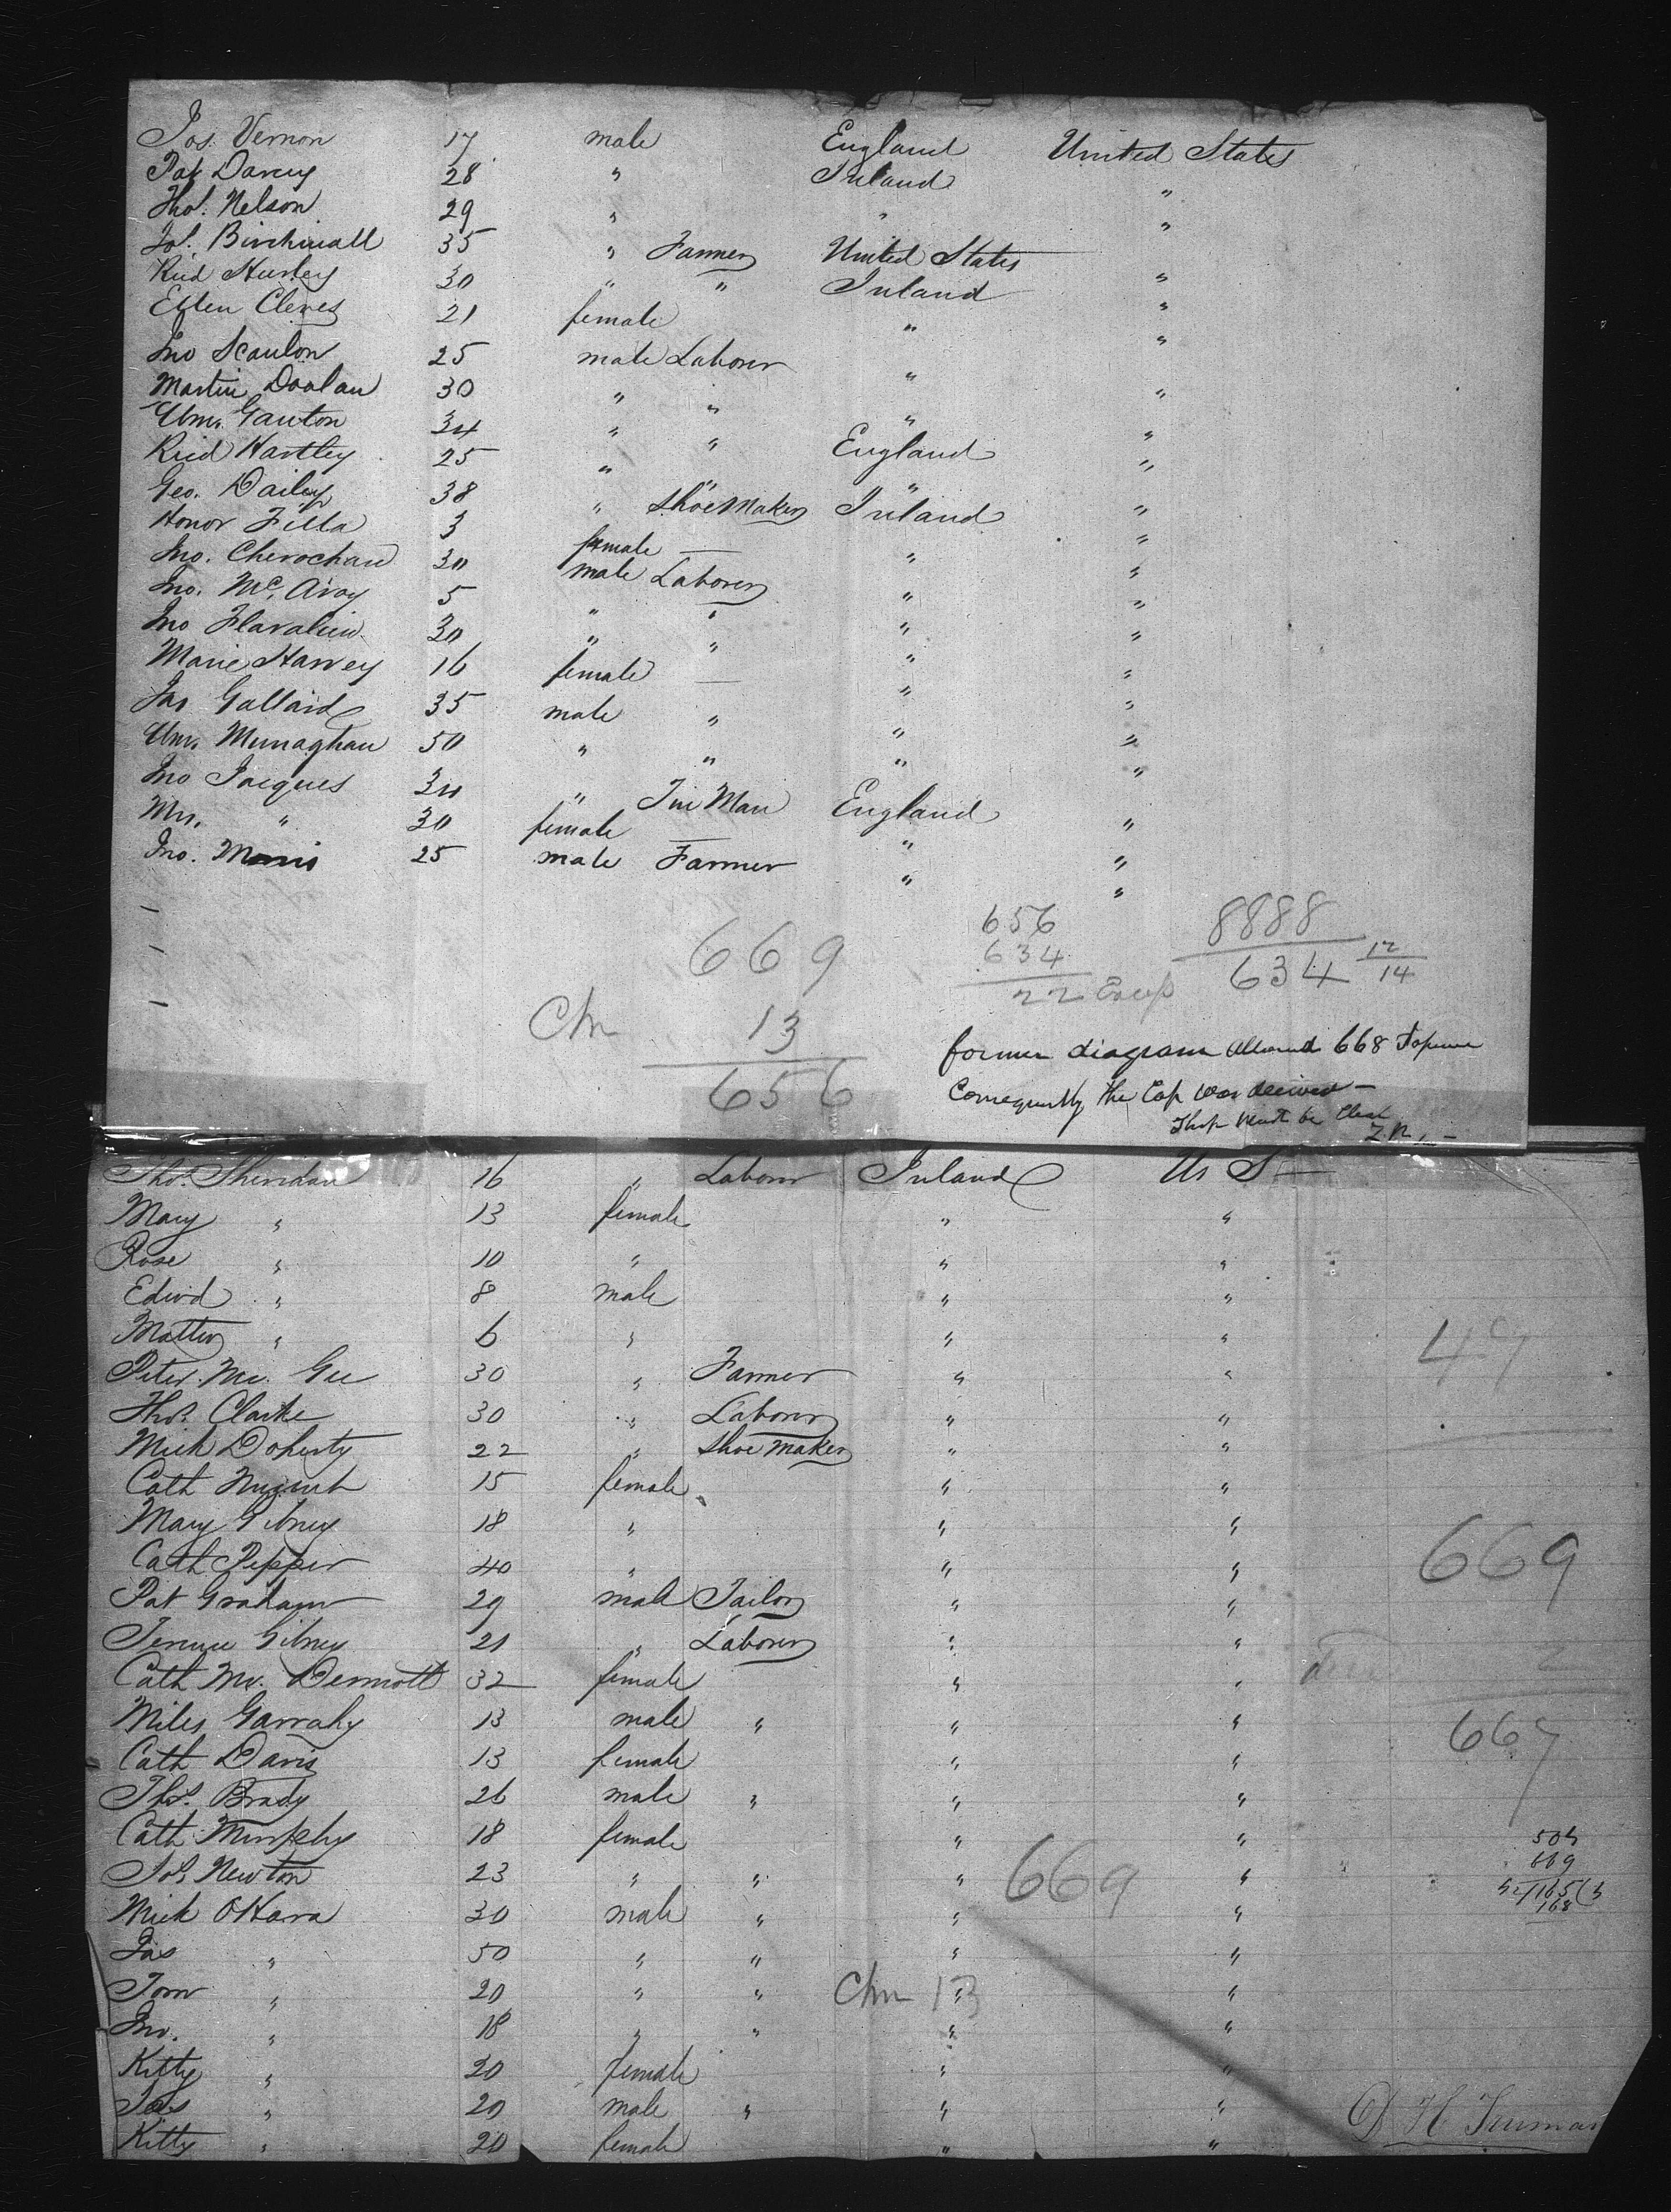 Jos. Vernon 17 male England United States
Pat Darcy 28 " Ireland "
Tho. Nelson 29 " " "
Jos. Birchwall 35 " Farmer United States "
Ricd Hurley 30 " " Ireland "
Ellen Cleres 21 female " "
Jno Scanlon 25 male Laborer " "
Martin Doolan 30 " " " "
Wm. Ganton 34 " " England "
Ricd Hartley 25 " " " "
Geo. Dailey 38 " Shoe Maker Ireland "
Honor Filla 3 female — " "
Jno. Cherochan 30 male Laborer " "
Jno. Mc. Avoy 5 " " " "
Jno Flavahin 30 " " " "
Marie Harvey 16 female — " "
Jas Gallaid 35 male " " "
Wm. Munaghan 50 " " " "
Jno Jacques 34 " Tin Man England "
Mrs. " 30 female " "
Jno. Morris 25 male Farmer " "
656 8888
669 634 634 12/14
22
Chn 13
656
former diagram allowed 668
Consequently the Cap was deceived —
Ship Must be Clear
Thos. Sheridan 16 " Laborer Ireland U S
Mary " 13 female " "
Rose " 10 " " "
Edwd " 8 male " "
Mattw " 6 " " "
Peter Mc. Gee 30 " Farmer " "
Thos. Clarke 30 " Laborer " "
Mick Doherty 22 " Shoe Maker " "
Cath Nugent 15 female " "
Mary Gibney 18 " " "
Cath Pepper 40 " " "
Pat Graham 29 male Tailor " "
Terence Gibney 21 " Laborer " "
Cath Mc. Dermott 32 female " "
Miles Garrahy 13 male " " "
Cath Davis 13 female " "
Thos. Brady 26 male " " "
Cath Murphy 18 female " "
Jos. Newton 23 " " " "
Mick OHara 30 male " " "
Jas " 50 " " " "
Tom " 20 " " " "
Jno. " 18 " " " "
Kitty " 20 female " "
Jas " 20 male " " "
Kitty " 20 female " "
47
669
2
667
504
669
165
168
669
Chn 13